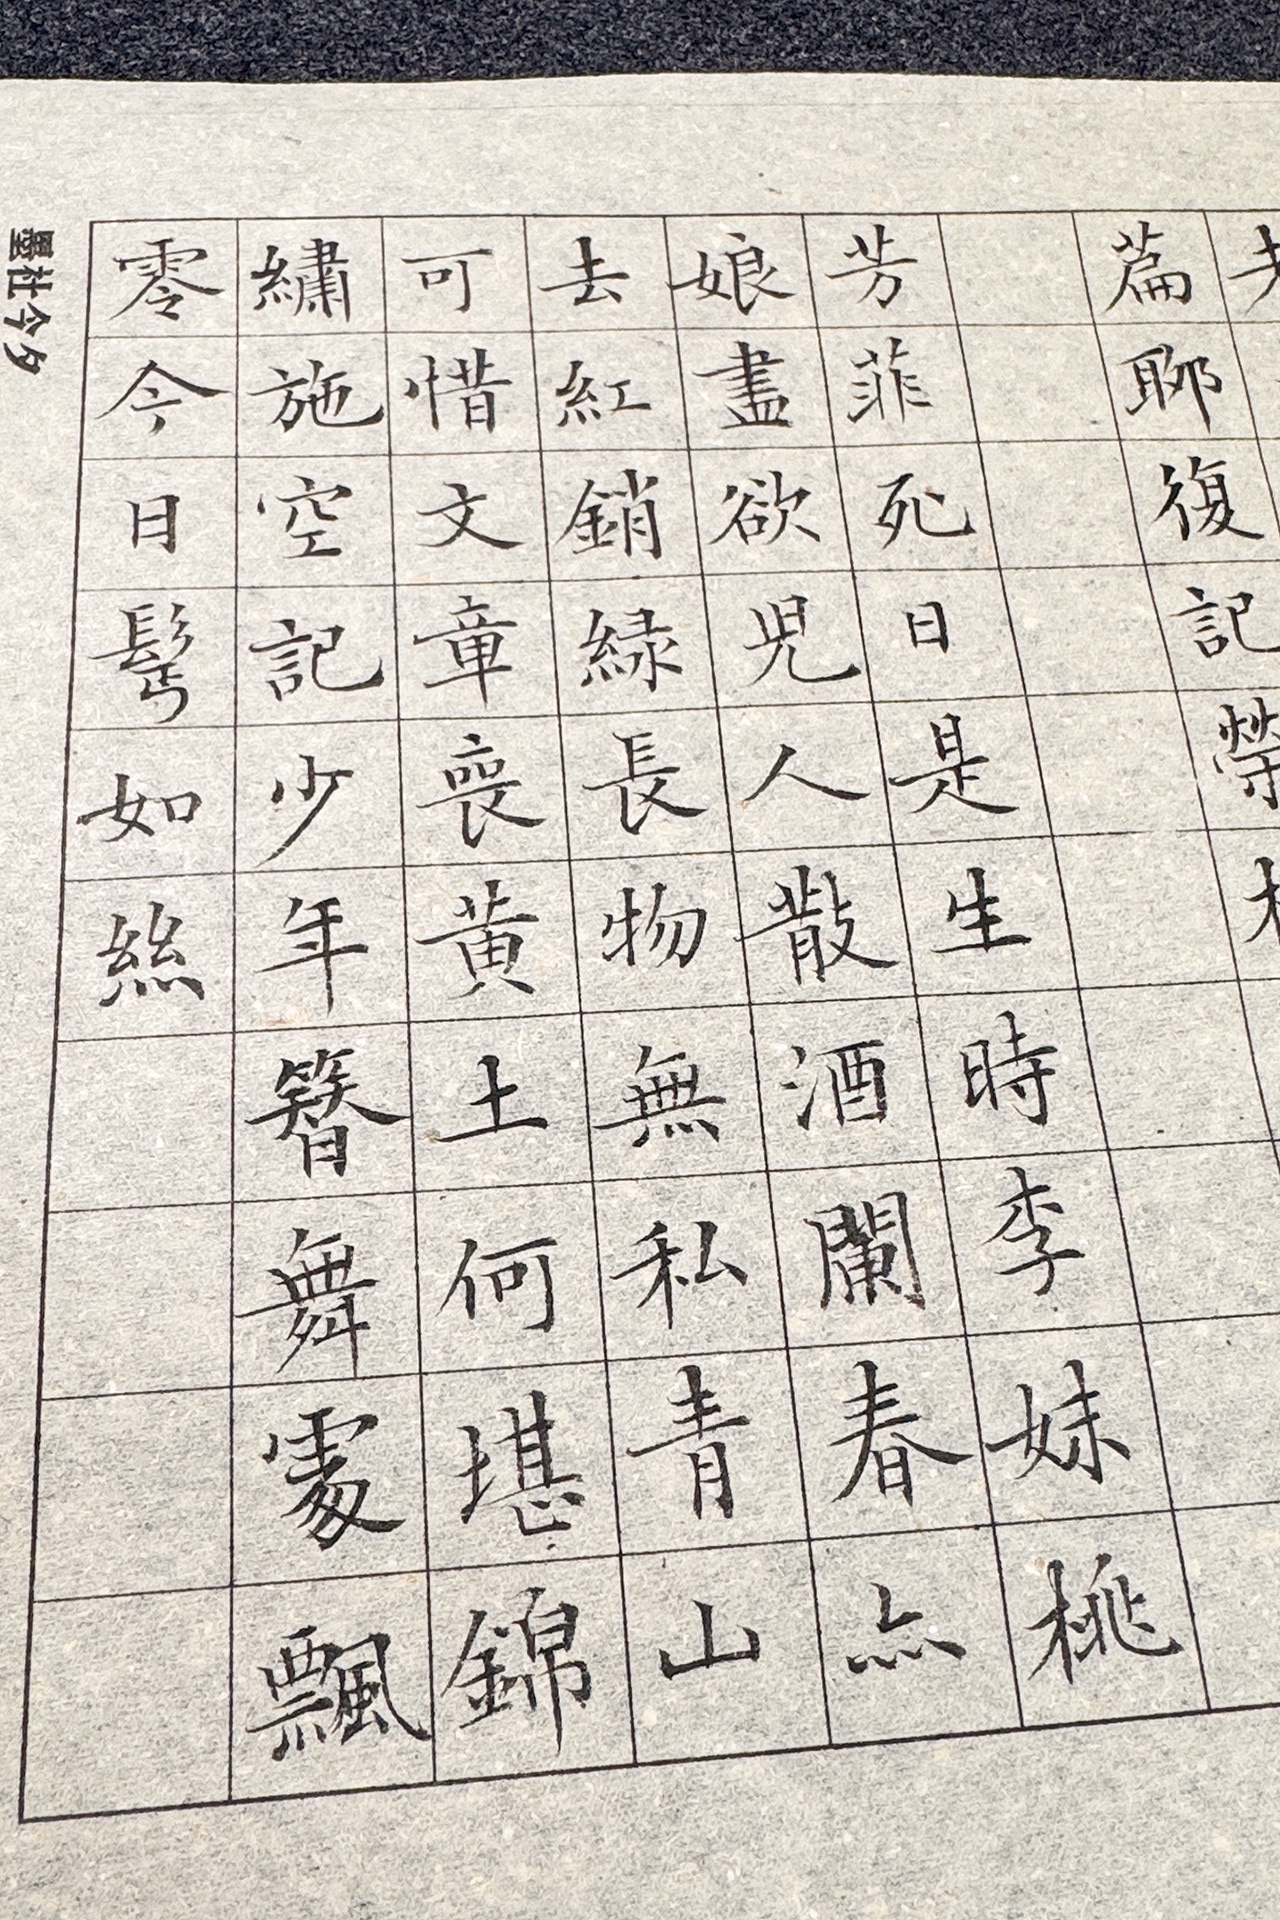 篇聊復記榮
芳菲死日是生時李妹桃
娘盡欲兒人散酒闌春亦
去紅銷緑長物無私青山
可惜文章喪黃土何堪錦
繡施空記少年簪舞處飄
零今日鬂如絲
墨社今夕